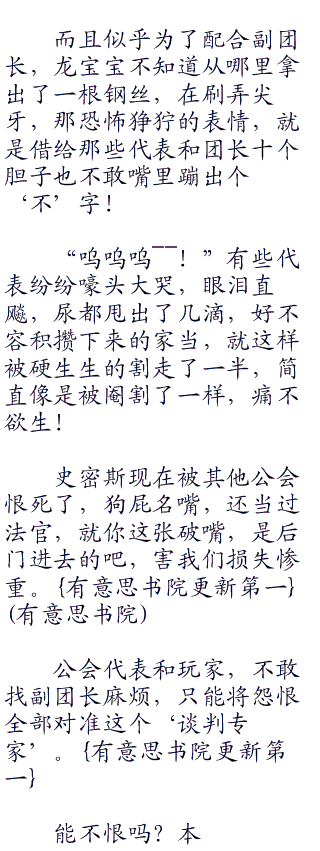 而且似乎为了配合副团
长，龙宝宝不知道从哪里拿
出了一根钢丝，在刷弄尖
牙，那恐怖狰狞的表情，就
是借给那些代表和团长十个
胆子也不敢嘴里蹦出个
‘不’字！
“呜呜呜——！”有些代
表纷纷嚎头大哭，眼泪直
飚，尿都甩出了几滴，好不
容积攒下来的家当，就这样
被硬生生的割走了一半，简
直像是被阉割了一样，痛不
欲生！
史密斯现在被其他公会
恨死了，狗屁名嘴，还当过
法官，就你这张破嘴，是后
门进去的吧，害我们损失惨
重。{有意思书院更新第一}
(有意思书院)
公会代表和玩家，不敢
找副团长麻烦，只能将怨恨
全部对准这个‘谈判专
家’。{有意思书院更新第
一}
能不恨吗？本